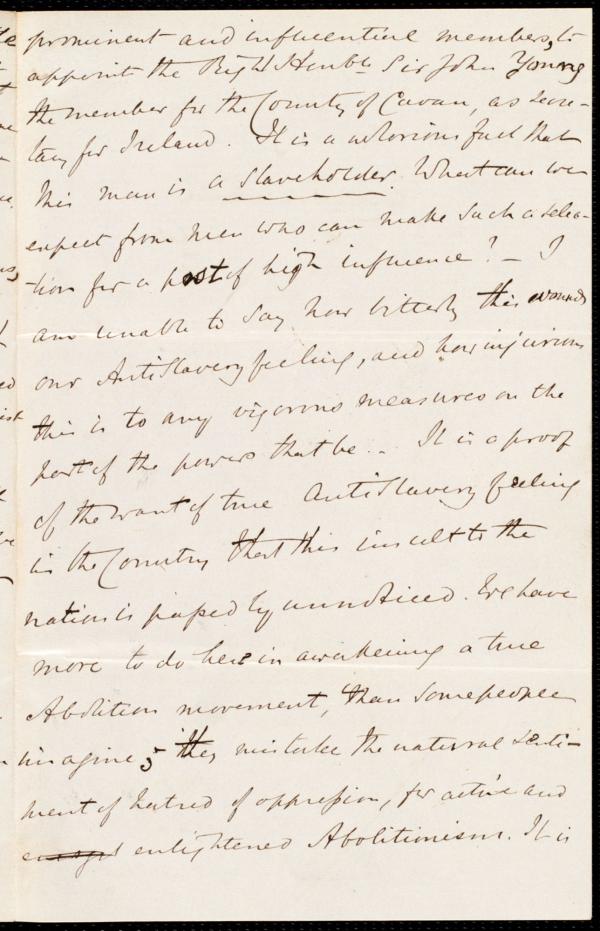 prominent and influential members, to
appoint the Right Honble Sir John Young
the member for the County of Cavan, as secre-
tary for Ireland. It is a notorious fact that
this man is a slaveholder. What can we
expect from men who can make such a selec-
-tion for a post of high influence? – I
am unable to say how bitterly this wounds
our AntiSlavery feeling, and how injurious
this is to any vigorous measures on the
part of the powers that be. . It is a proof
of the want of true AntiSlavery feeling
in the Country that this insult to the
nation is passed by unnoticed. We have
more to do here in awakening a true
Abolition movement, than some people
imagine; they mistake the natural senti-
ment of hatred of oppression, for active and
enlightened Abolitionism. It is